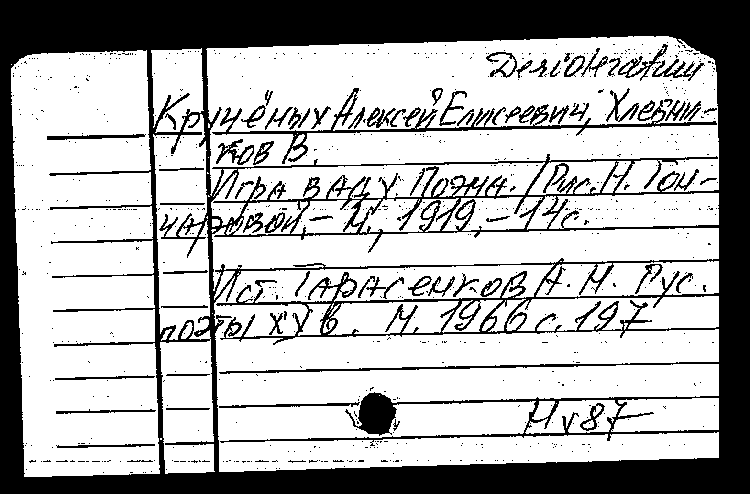 Desideratum
Кручёных Алексей Елисеевич, Хлебни-
ков В.
Игра в аду. Поэма. / Рис. Н. Гон-
чаровой. – М., 1919. – 14 с.
Ист. Тарасенков А. Н. Рус.
поэты XX в. М. 1966 с. 197